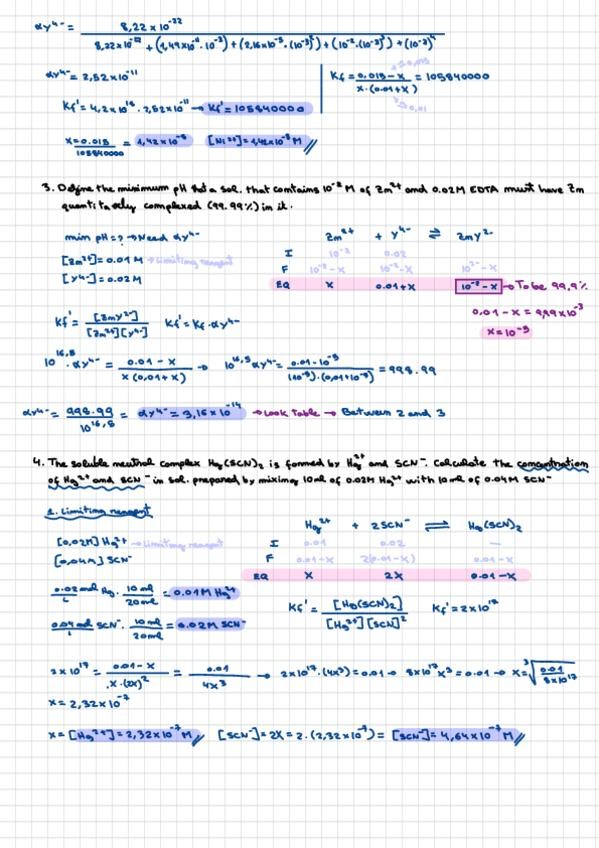 αy⁴⁻ = 8,22×10⁻²² / 8,22×10⁻²² + (1,49×10⁻¹⁷·10⁻³) + (2,16×10⁻⁵·(10⁻³)²) + (10⁻²·(10⁻³)³) + (10⁻³)⁴
αy⁴⁻ = 2,52×10⁻¹¹
Kf = 0.015 − x / x·(0.01+x) = 105840000
Kf' = 4,2×10¹⁸ · 2,52×10⁻¹¹ → Kf' = 105840000
x = 0.015 / 105840000 = 1,42×10⁻⁸ [Ni²⁺] = 1,42×10⁻⁸ M
3. Define the minimum pH that a sol. that contains 10⁻² M of Zn²⁺ and 0.02M EDTA must have Zn
quantitatively complexed (99.99%) in it.
min pH = ? → Need αy⁴⁻
Zn²⁺ + y⁴⁻ ⇌ Zny²⁻
[Zn²⁺] = 0.01 M → Limiting reagent
I 10⁻² 0.02
[y⁴⁻] = 0.02 M
F 10⁻²−x 10⁻²−x 10⁻²−x
EQ x 0.01+x 10⁻²−x → To be 99,9%
0.01 − x = 9,99×10⁻³
x = 10⁻⁵
Kf' = [Zny²⁻] / [Zn²⁺][y⁴⁻] Kf' = Kf·αy⁴⁻
10¹⁶·⁵ · αy⁴⁻ = 0.01 − x / x(0,01+x) → 10¹⁶·⁵ αy⁴⁻ = 0.01−10⁻⁵ / (10⁻⁵)·(0,01+10⁻⁵) = 998.99
αy⁴⁻ = 998.99 / 10¹⁶·⁵ = αy⁴⁻ = 3,16×10⁻¹⁴ → Look table → Between 2 and 3
4. The soluble neutral complex Hg(SCN)₂ is formed by Hg²⁺ and SCN⁻. Calculate the concentration
of Hg²⁺ and SCN⁻ in sol. prepared by mixing 10ml of 0.02M Hg²⁺ with 10ml of 0.04M SCN⁻
1. Limiting reagent
Hg²⁺ + 2SCN⁻ ⇌ Hg(SCN)₂
[0,02M] Hg²⁺ → Limiting reagent
I 0.01 0.02 —
[0,04M] SCN⁻
F 0.01−x 2(0.01−x) 0.01−x
EQ x 2x 0.01−x
0.02mol / L Hg · 10ml / 20ml = 0.01M Hg²⁺
Kf' = [Hg(SCN)₂] / [Hg²⁺][SCN]² Kf' = 2×10¹⁷
0.04mol / L SCN⁻ · 10ml / 20ml = 0.02M SCN⁻
2×10¹⁷ = 0.01−x / x·(2x)² = 0.01 / 4x³ → 2×10¹⁷·(4x³) = 0.01 → 8×10¹⁷x³ = 0.01 → x = ³√0.01 / 8×10¹⁷
x = 2,32×10⁻⁷
x = [Hg²⁺] = 2,32×10⁻⁷ M [SCN⁻] = 2x = 2·(2,32×10⁻⁷) = [SCN⁻] = 4,64×10⁻⁷ M